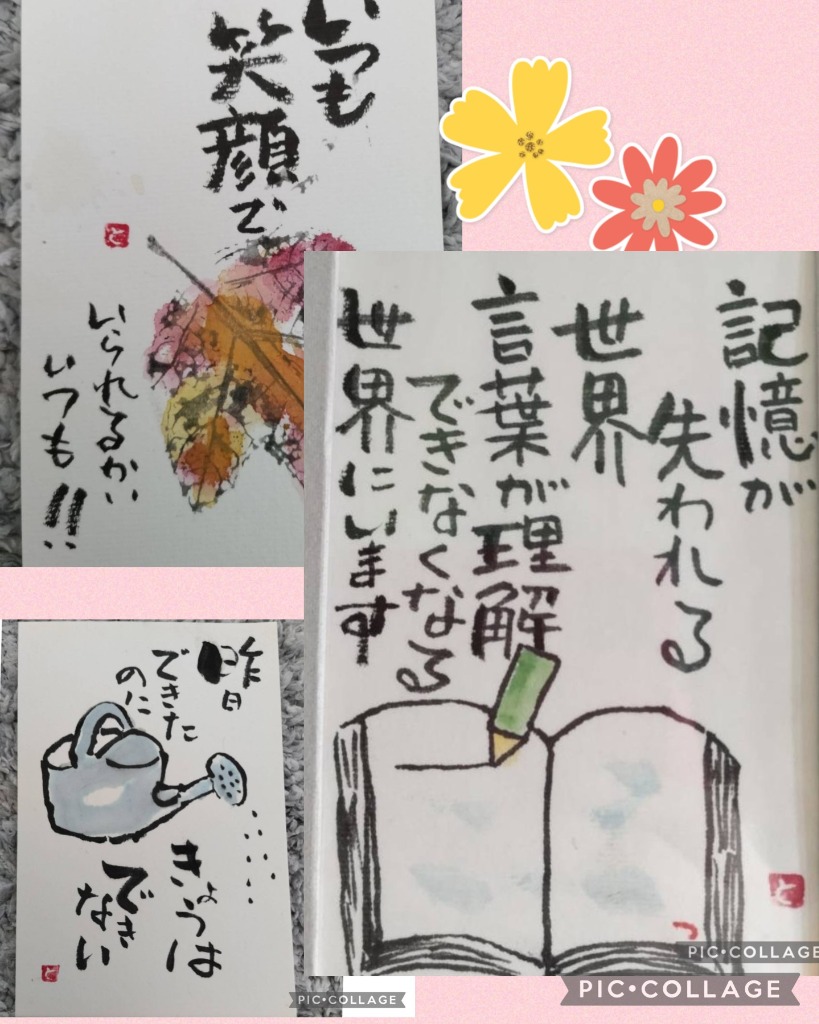 いつも
笑顔で
いられるかい
いつも!!
と
記憶が
失われる
世界
言葉が理解
できなくなる
世界にいます
と
昨日
できた
のに
きょうは
でき
ない
と
PIC•COLLAGE
PIC•COLLAGE
PIC•COLLAGE